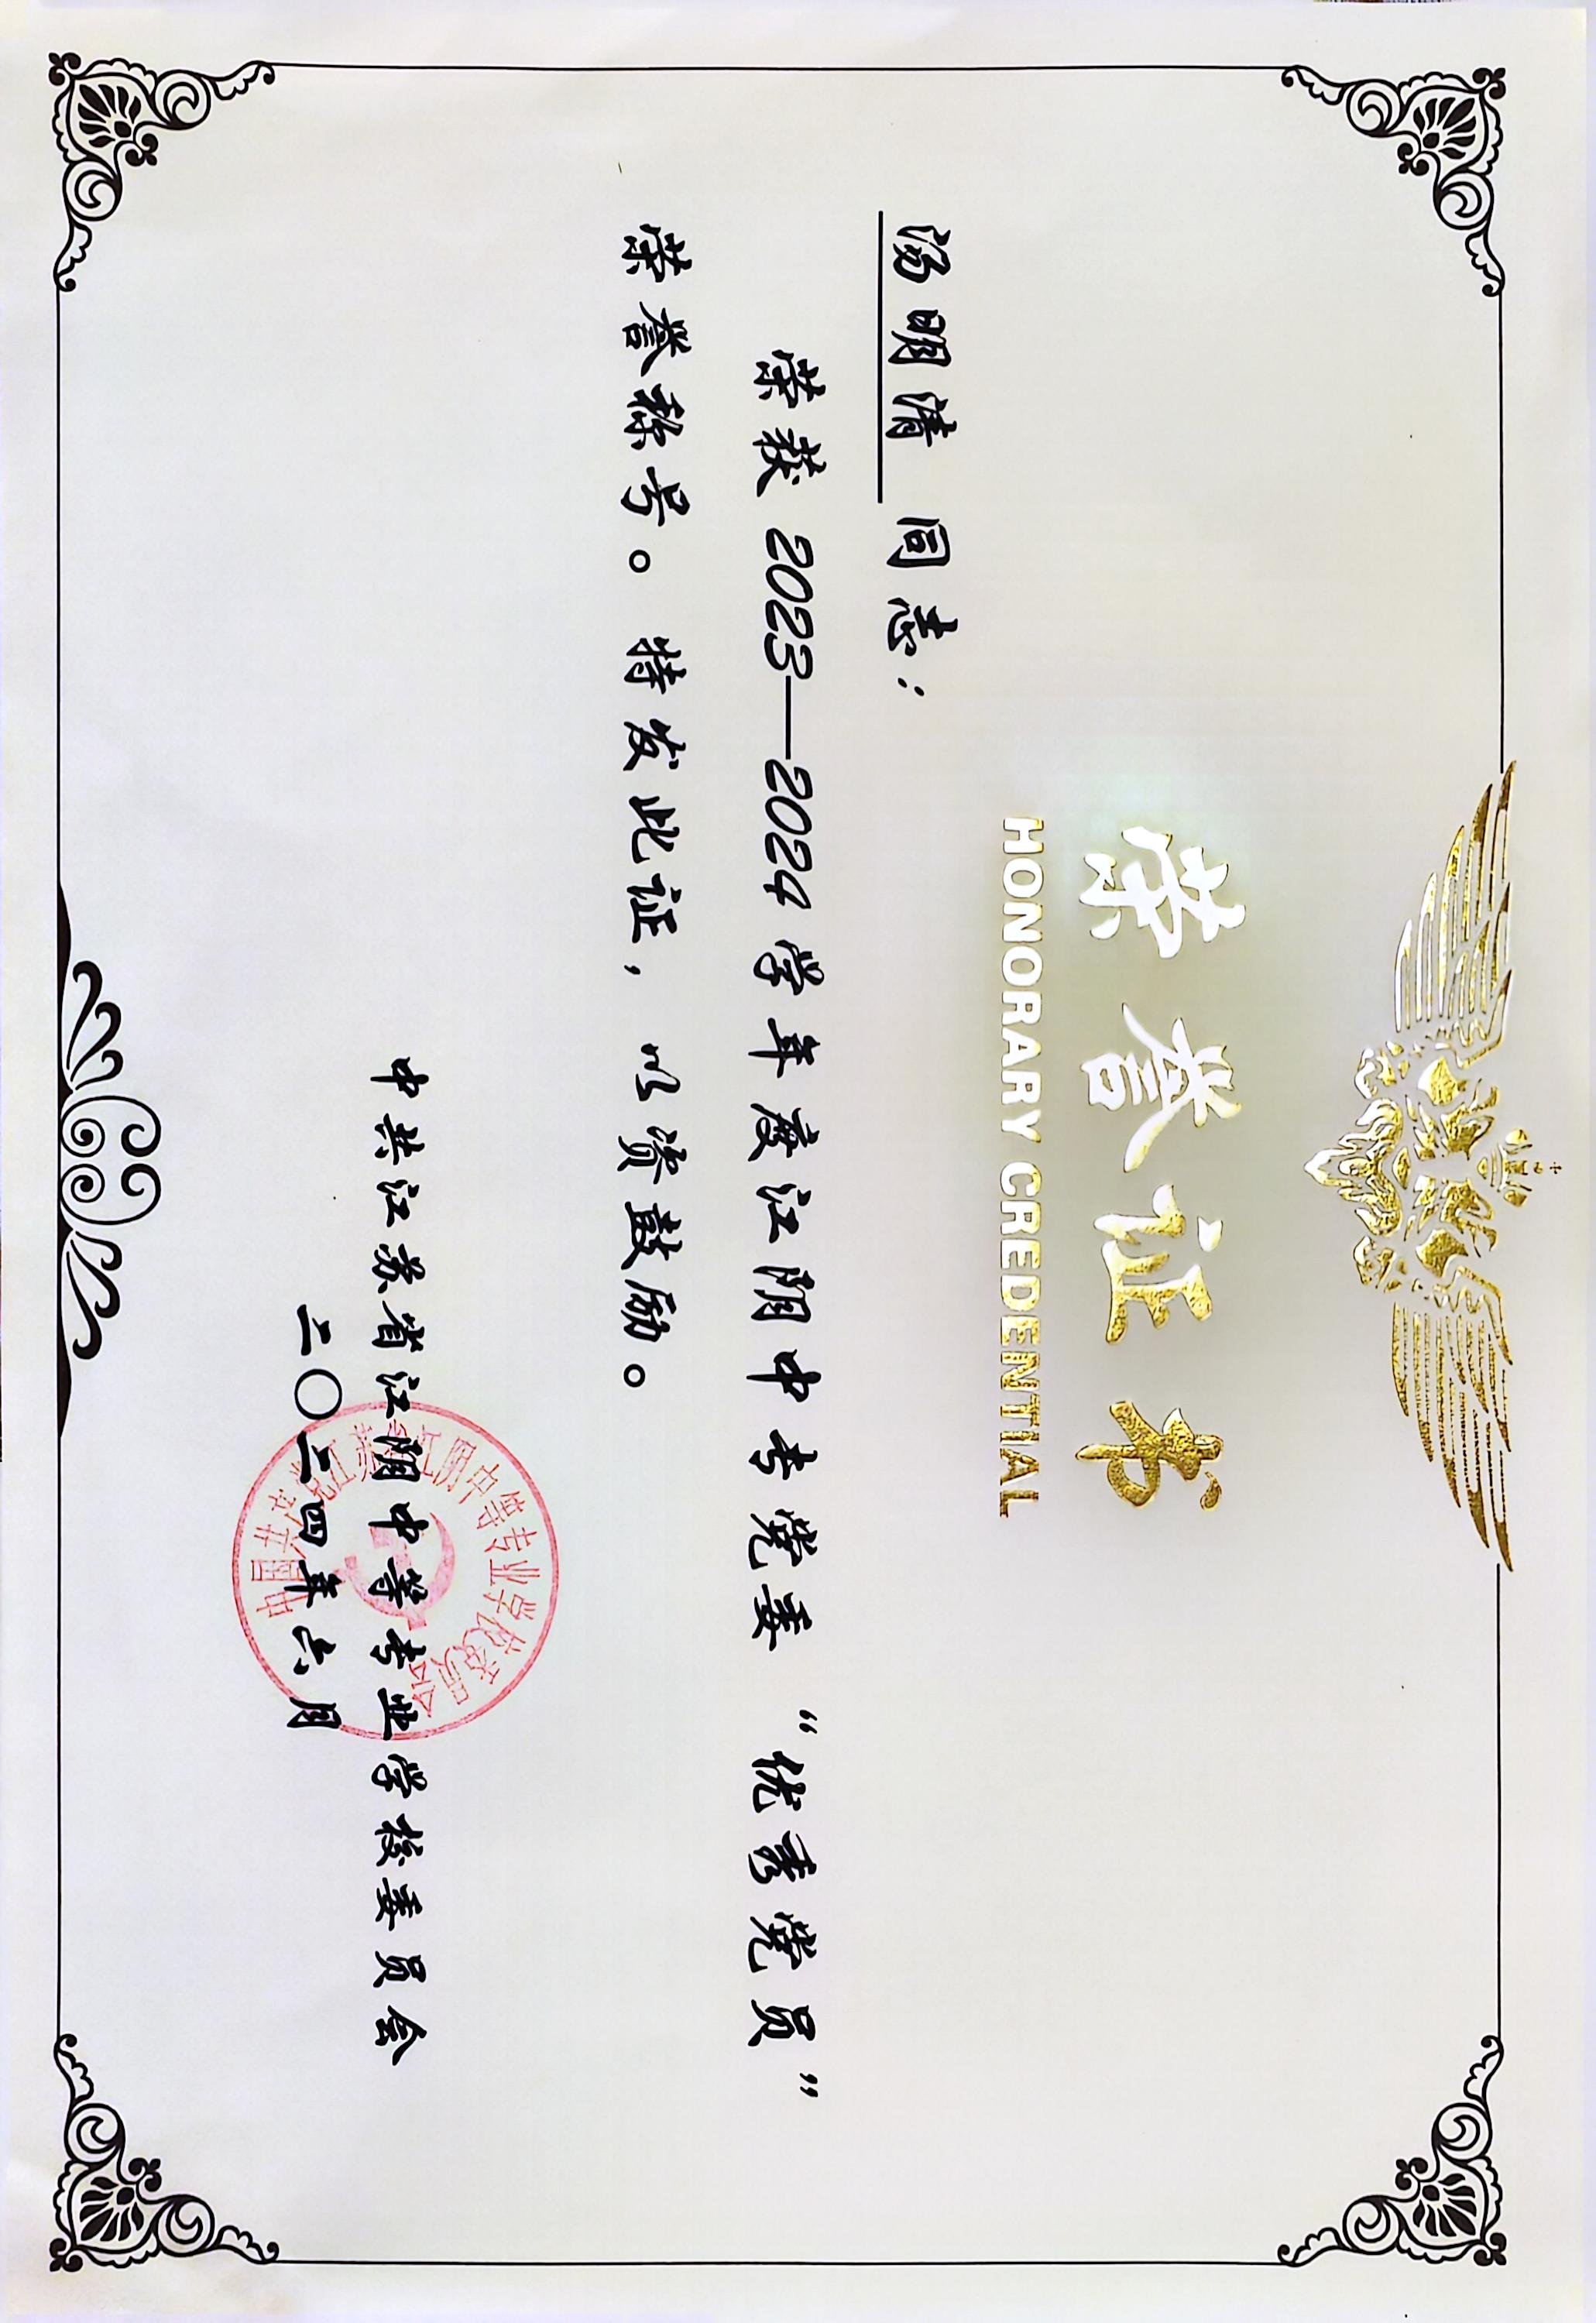 荣誉证书
HONORARY CREDENTIAL
汤明清 同志：
荣获 2023—2024 学年度江阴中专党委 “优秀党员”
荣誉称号。特发此证，以资鼓励。
中共江苏省江阴中等专业学校委员会
二〇二四年六月
中国共产党江苏省江阴中等专业学校委员会